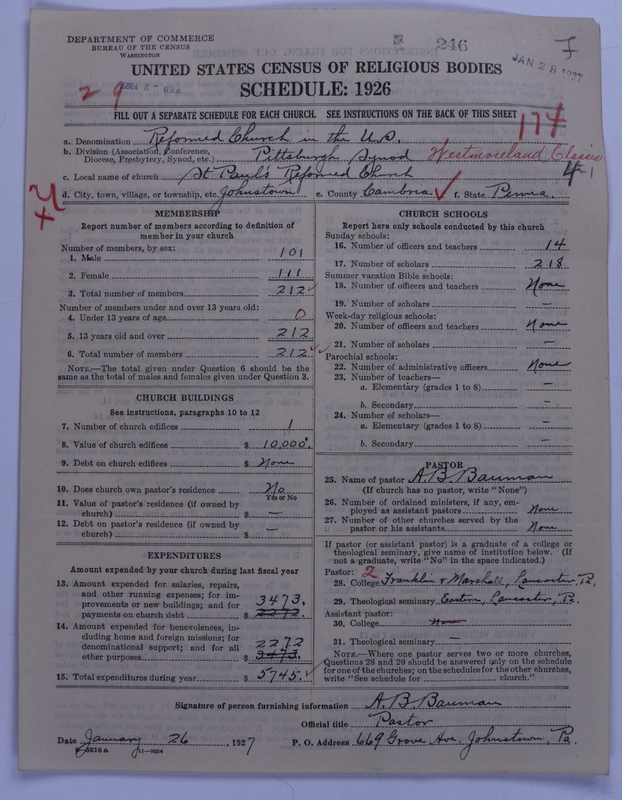 DEPARTMENT OF COMMERCE
BUREAU OF THE CENSUS
WASHINGTON
246
JAN 28 1927
UNITED STATES CENSUS OF RELIGIOUS BODIES
SCHEDULE: 1926
2 9
FILL OUT A SEPARATE SCHEDULE FOR EACH CHURCH. SEE INSTRUCTIONS ON THE BACK OF THIS SHEET
174
a. Denomination Reformed Church in the U.S.
b. Division (Association, Conference, Diocese, Presbytery, Synod, etc.) Pittsburgh Synod Westmoreland Classis
c. Local name of church St Paul's Reformed Church
d. City, town, village, or township, etc. Johnstown e. County Cambria f. State Penna.
MEMBERSHIP
Report number of members according to definition of
member in your church
Number of members, by sex:
1. Male 101
2. Female 111
3. Total number of members 212
Number of members under and over 13 years old:
4. Under 13 years of age 0
5. 13 years old and over 212
6. Total number of members 212
NOTE.—The total given under Question 6 should be the
same as the total of males and females given under Question 3.
CHURCH BUILDINGS
See instructions, paragraphs 10 to 12
7. Number of church edifices 1
8. Value of church edifices $ 10,000.
9. Debt on church edifices $ None
10. Does church own pastor's residence No
Yes or No
11. Value of pastor's residence (if owned by
church) $ —
12. Debt on pastor's residence (if owned by
church) $ —
EXPENDITURES
Amount expended by your church during last fiscal year
13. Amount expended for salaries, repairs,
and other running expenses; for im-
provements or new buildings; and for 3473.
payments on church debt $ 2272.
14. Amount expended for benevolences, in-
cluding home and foreign missions; for
denominational support; and for all 2272
other purposes $ 3473.
15. Total expenditures during year $ 5745.
CHURCH SCHOOLS
Report here only schools conducted by this church
Sunday schools:
16. Number of officers and teachers 14
17. Number of scholars 218
Summer vacation Bible schools:
18. Number of officers and teachers None
19. Number of scholars —
Week-day religious schools:
20. Number of officers and teachers None
21. Number of scholars —
Parochial schools:
22. Number of administrative officers None
23. Number of teachers—
a. Elementary (grades 1 to 8) —
b. Secondary —
24. Number of scholars—
a. Elementary (grades 1 to 8) —
b. Secondary —
PASTOR
25. Name of pastor A. B. Bauman
(If church has no pastor, write "None")
26. Number of ordained ministers, if any, em-
ployed as assistant pastors None
27. Number of other churches served by the
pastor or his assistants None
If pastor (or assistant pastor) is a graduate of a college or
theological seminary, give name of institution below. (If
not a graduate, write "No" in the space indicated.)
Pastor: 2
28. College Franklin & Marshall, Lancaster, Pa.
29. Theological seminary Eastern, Lancaster, Pa.
Assistant pastor:
30. College None
31. Theological seminary —
NOTE.—Where one pastor serves two or more churches,
Questions 28 and 29 should be answered only on the schedule
for one of the churches; on the schedules for the other churches,
write "See schedule for church."
Signature of person furnishing information A. B. Bauman
Official title Pastor
Date January 26, 1927 P. O. Address 669 Grove Ave, Johnstown, Pa.
11—9054